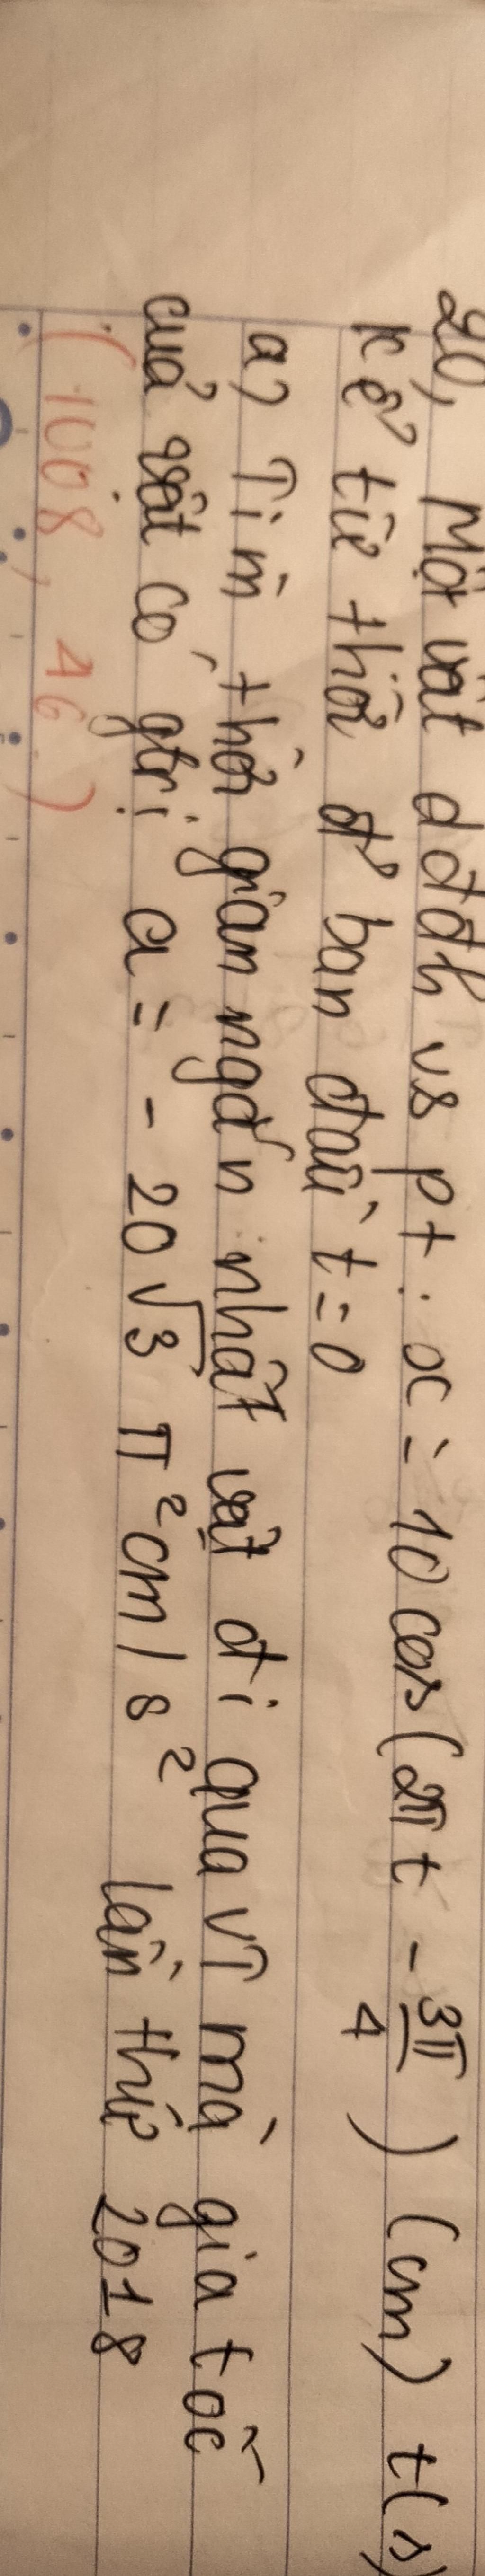 20, Một vật dđđh vs pt : x = 10 cos(2πt - 3π/4) (cm) t(s)
kể từ thời đ' ban đầu t=0
a) Tìm thời gian ngắn nhất vật đi qua VT mà gia tốc
của vật có gtrị a = - 20√3 π² cm/s² lần thứ 2018
( 1008, 46 )